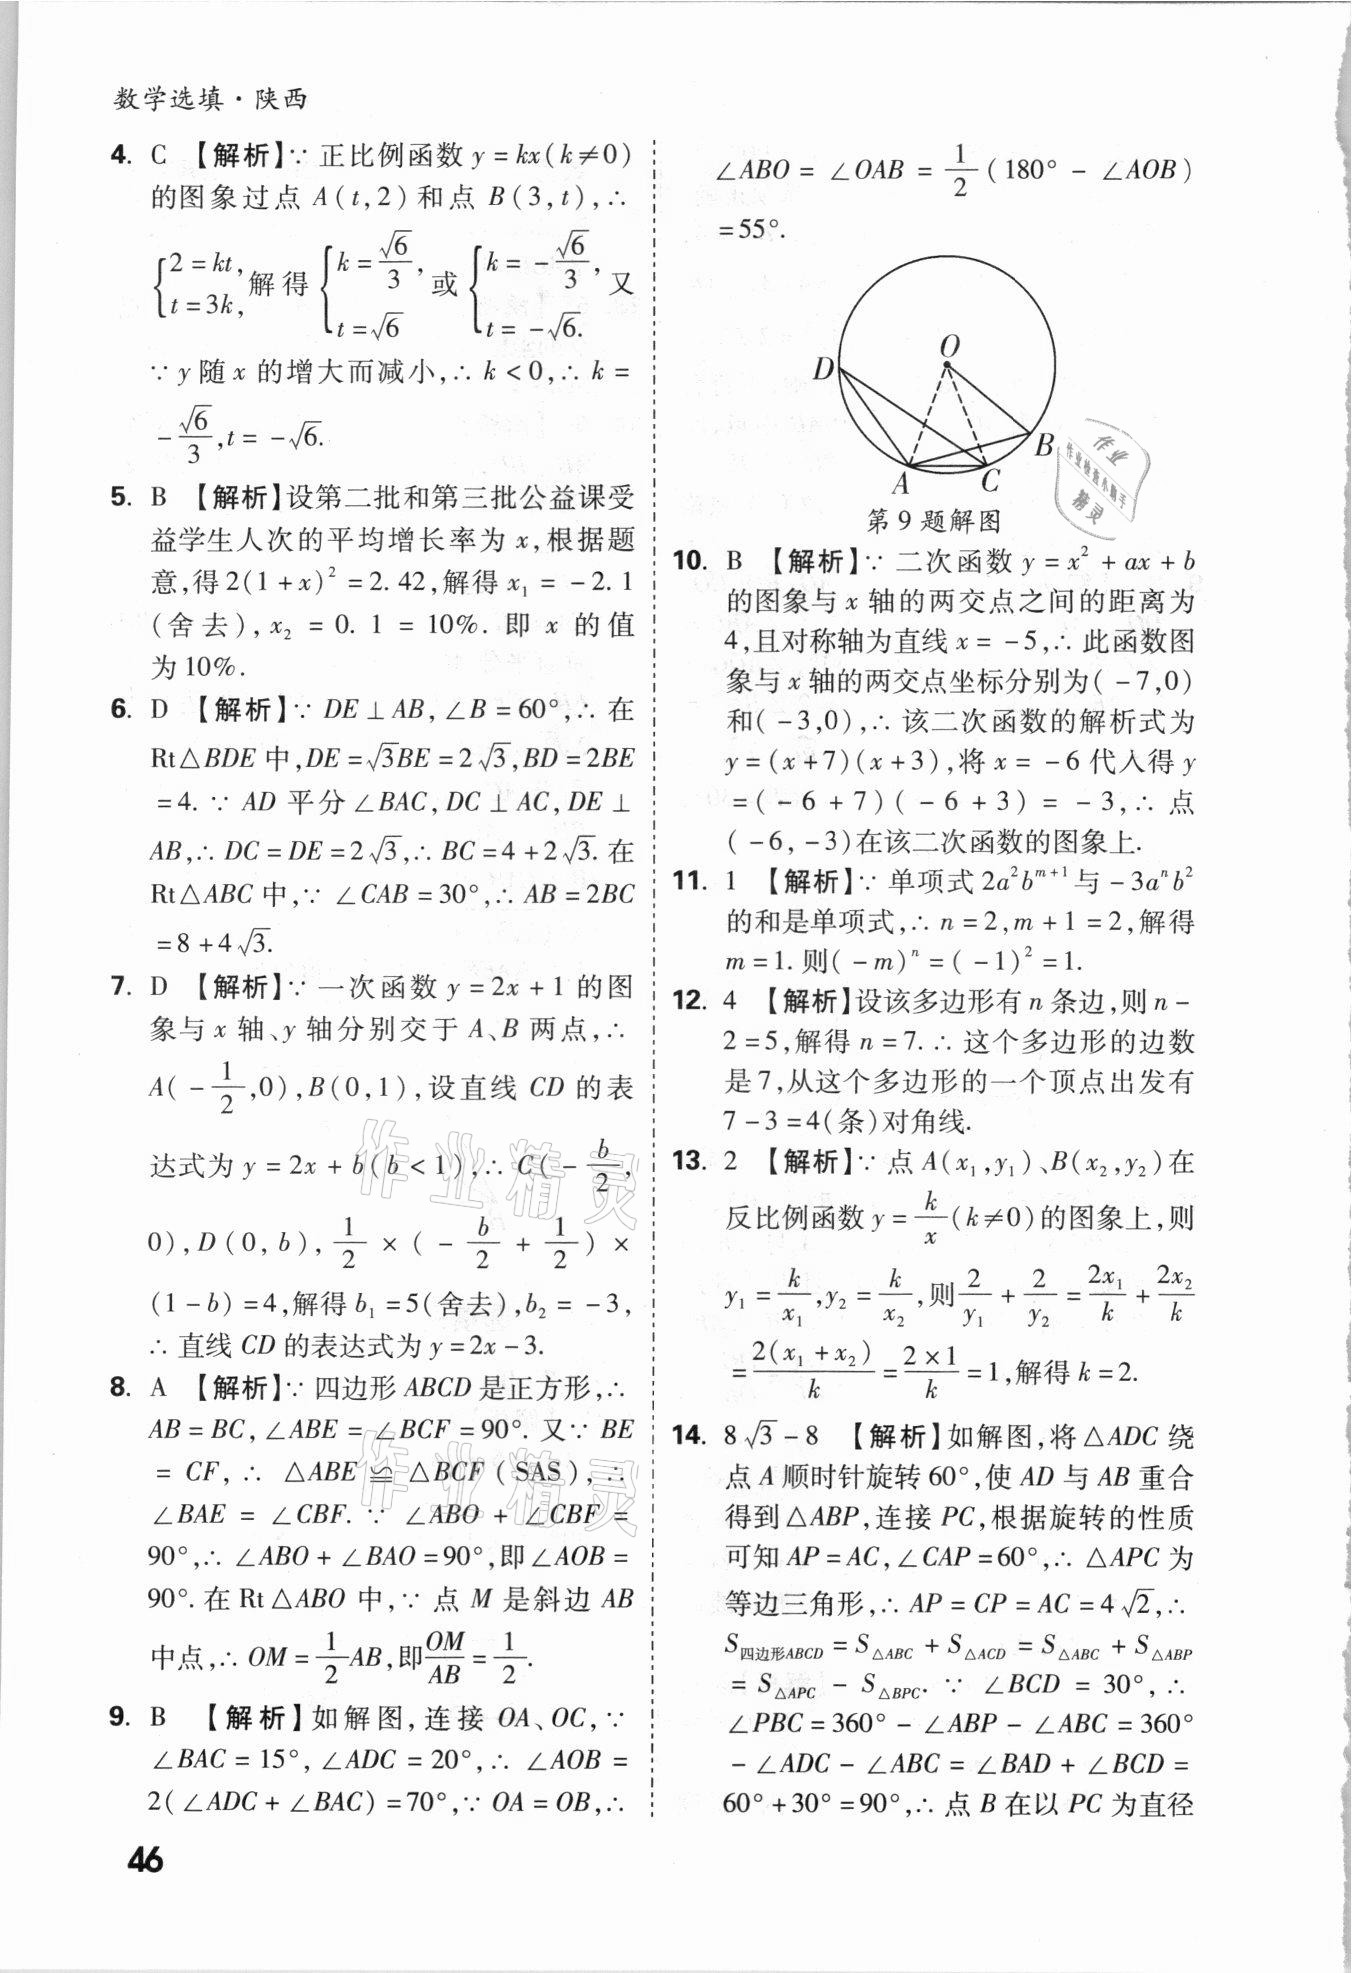 数学选填·陕西
4. C 【解析】∵ 正比例函数 y=kx(k≠0)
的图象过点 A(t,2)和点 B(3,t),∴
{2=kt, t=3k, 解得 {k=√6/3, t=√6 或 {k=-√6/3, t=-√6. 又
∵ y 随 x 的增大而减小,∴ k<0,∴ k=
-√6/3,t=-√6.
5. B 【解析】设第二批和第三批公益课受
益学生人次的平均增长率为 x,根据题
意,得2(1+x)²=2.42,解得 x₁=-2.1
(舍去),x₂=0.1=10%.即 x 的值
为10%.
6. D 【解析】∵ DE⊥AB,∠B=60°,∴ 在
Rt△BDE 中,DE=√3BE=2√3,BD=2BE
=4. ∵ AD 平分∠BAC,DC⊥AC,DE⊥
AB,∴ DC=DE=2√3,∴ BC=4+2√3.在
Rt△ABC 中,∵ ∠CAB=30°,∴ AB=2BC
=8+4√3.
7. D 【解析】∵ 一次函数 y=2x+1 的图
象与 x 轴、y 轴分别交于 A、B 两点,∴
A(-1/2,0),B(0,1),设直线 CD 的表
达式为 y=2x+b(b<1),∴ C(-b/2,
0),D(0,b),1/2×(-b/2+1/2)×
(1-b)=4,解得 b₁=5(舍去),b₂=-3,
∴ 直线 CD 的表达式为 y=2x-3.
8. A 【解析】∵ 四边形 ABCD 是正方形,∴
AB=BC,∠ABE=∠BCF=90°. 又∵ BE
=CF,∴ △ABE≌△BCF(SAS),∴
∠BAE=∠CBF. ∵ ∠ABO+∠CBF=
90°,∴ ∠ABO+∠BAO=90°,即∠AOB=
90°.在 Rt△ABO 中,∵ 点 M 是斜边 AB
中点,∴ OM=1/2AB,即OM/AB=1/2.
9. B 【解析】如解图,连接 OA、OC,∵
∠BAC=15°,∠ADC=20°,∴ ∠AOB=
2(∠ADC+∠BAC)=70°,∵ OA=OB,∴
46
∠ABO=∠OAB=1/2(180°-∠AOB)
=55°.
O
D
B
A
C
第9题解图
作业
作业检查小助手
精灵
10. B 【解析】∵ 二次函数 y=x²+ax+b
的图象与 x 轴的两交点之间的距离为
4,且对称轴为直线 x=-5,∴ 此函数图
象与 x 轴的两交点坐标分别为(-7,0)
和(-3,0),∴ 该二次函数的解析式为
y=(x+7)(x+3),将 x=-6代入得 y
=(-6+7)(-6+3)=-3,∴ 点
(-6,-3)在该二次函数的图象上.
11. 1 【解析】∵ 单项式 2a²bᵐ⁺¹与-3aⁿb²
的和是单项式,∴ n=2,m+1=2,解得
m=1.则(-m)ⁿ=(-1)²=1.
12. 4 【解析】设该多边形有 n 条边,则 n-
2=5,解得 n=7.∴ 这个多边形的边数
是7,从这个多边形的一个顶点出发有
7-3=4(条)对角线.
13. 2 【解析】∵ 点 A(x₁,y₁)、B(x₂,y₂)在
反比例函数 y=k/x(k≠0)的图象上,则
y₁=k/x₁,y₂=k/x₂,则2/y₁+2/y₂=2x₁/k+2x₂/k
=2(x₁+x₂)/k=2×1/k=1,解得 k=2.
14. 8√3-8 【解析】如解图,将△ADC 绕
点 A 顺时针旋转60°,使 AD 与 AB 重合
得到△ABP,连接 PC,根据旋转的性质
可知 AP=AC,∠CAP=60°,∴ △APC 为
等边三角形,∴ AP=CP=AC=4√2,∴
S四边形ABCD=S△ABC+S△ACD=S△ABC+S△ABP
=S△APC-S△BPC. ∵ ∠BCD=30°,∴
∠PBC=360°-∠ABP-∠ABC=360°
-∠ADC-∠ABC=∠BAD+∠BCD=
60°+30°=90°,∴ 点 B 在以 PC 为直径
作业精灵
作业精灵